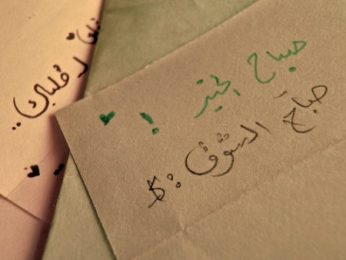 صباح الخير !
صباح الشوق :$
لـ قلبك ..